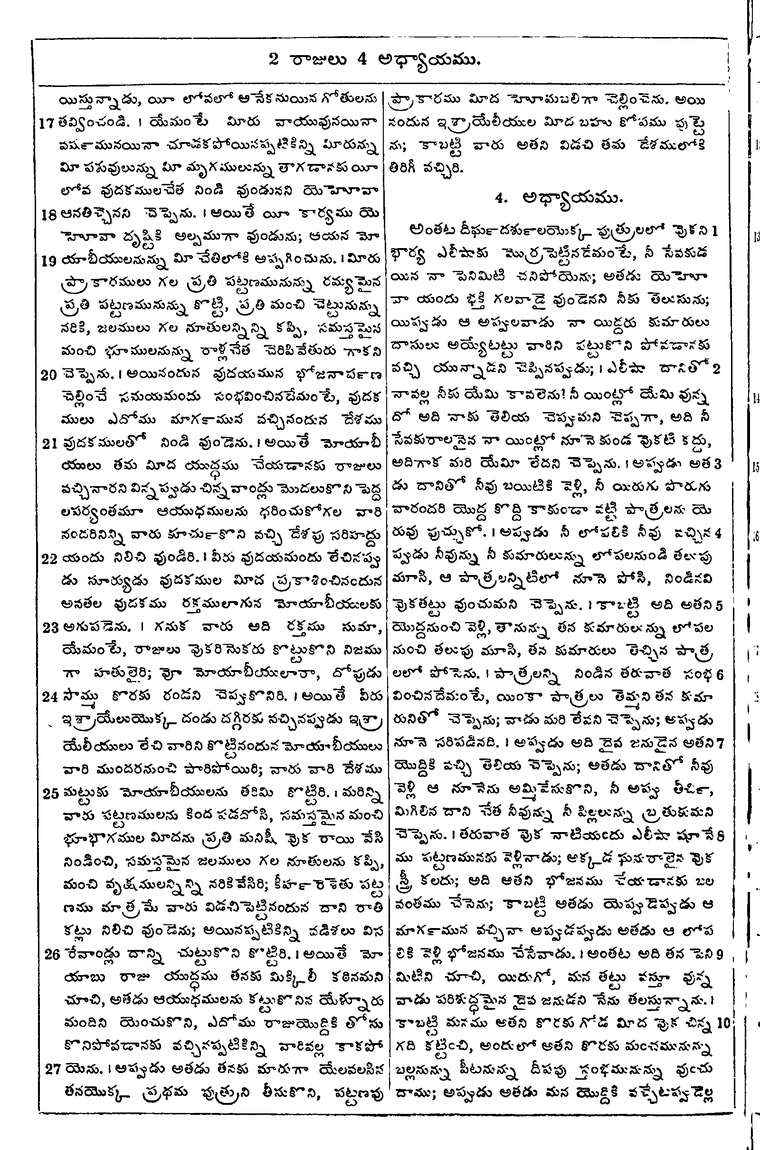 2 రాజులు 4 అధ్యాయము.
యిస్తున్నాడు, యీ లోవలో అనేకనుయిన గోతులను
17 తవ్వించండి. । యేమంటే మీరు వాయువునయినా
వర్షమునయినా చూడకపోయినప్పటికిన్ని మీరున్ను
మీ పసువులున్ను మీ మృగములున్ను తాగడానకు యీ
లోవ వుదకములచేత నిండి వుండునని యెహోవా
18 ఆనతిచ్చెనని చెప్పెను. । అయితే యీ కార్యము యె
హోవా దృష్టికి అల్పముగా వుండును; ఆయన మో
19 యాబీయులనున్ను మీ చేతిలోకి అప్పగించును. । మీరు
ప్రాకారములు గల ప్రతి పట్టణమునున్ను రమ్యమైన
ప్రతి పట్టణమునున్ను కొట్టి, ప్రతి మంచి చెట్టునున్ను
నరికి, జలములు గల నూతులన్నిన్ని కప్పి, సమస్తమైన
మంచి భూములనున్ను రాళ్లచేత చెరిపివేతురు గాకని
20 చెప్పెను. । అయినందున వుదయమున భోజనార్పణ
చెల్లించే సమయమందు సంభవించినదేమంటే, వుదక
ములు ఎదోము మార్గమున వచ్చినందున దేశము
21 వుదకములతో నిండి వుండెను. । అయితే మోయాబీ
యులు తమ మీద యుద్ధము చేయడానకు రాజులు
వచ్చినారని విన్నప్పుడు చిన్న వాండ్లు మొదలుకొని పెద్ద
లపర్యంతమూ ఆయుధములను ధరించుకోగల వారి
నందరినిన్ని వారు కూర్చుకొని వచ్చి దేశపు సరిహద్దు
22 యందు నిలిచి వుండిరి. । వీరు వుదయమందు లేచినప్పు
డు సూర్యుడు వుదకముల మీద ప్రకాశించినందున
అవతల వుదకము రక్తములాగున మోయాబీయులకు
23 అగుపడెను. । గనుక వారు ఆది రక్తము సుమా,
యేమంటే, రాజులు వొకరినొకరు కొట్టుకొని నిజము
గా హతులైరి; వో మోయాబీయులారా, దోపుడు
24 సొమ్ము కొరకు రండని చెప్పుకొనిరి. । అయితే వీరు
ఇశ్రాయేలుయొక్క దండు దగ్గిరకు వచ్చినప్పుడు ఇశ్రా
యేలీయులు లేచి వారిని కొట్టినందున మోయాబీయులు
వారి ముందరనుంచి పారిపోయిరి; వారు వారి దేశము
25 మట్టుకు మోయాబీయులను తరిమి కొట్టిరి. । మరిన్ని
వారు పట్టణములను కింద పడదోసి, సమస్తమైన మంచి
భూభాగముల మీదను ప్రతి మనిషీ వొక రాయి వేసి
నిండించి, సమస్తమైన జలములు గల నూతులను కప్పి,
మంచి వృక్షములన్నిన్ని నరికివేసిరి; కీర్హారాశెతు పట్ట
ణము మాత్రమే వారు విడచిపెట్టినందున దాని రాతి
కట్లు నిలిచి వుండెను; అయినప్పటికిన్ని వడిశలు విస
26 రేవాండ్లు దాన్ని చుట్టుకొని కొట్టిరి. । అయితే మో
యాబు రాజు యుద్ధము తనకు మిక్కిలీ కఠినమని
చూచి, అతడు ఆయుధములను కట్టుకొనిన యేళ్నూరు
మందిని యెంచుకొని, ఎదోము రాజుయొద్దికి తోసు
కొనిపోవడానకు వచ్చినప్పటికిన్ని వారివల్ల కాకపో
27 యెను. । అప్పుడు అతడు తనకు మారుగా యేలవలసిన
తనయొక్క ప్రథమ పుత్రుని తీసుకొని, పట్టణపు
ప్రాకారము మీద హోమబలిగా చెల్లించెను. అయి
నందున ఇశ్రాయేలీయుల మీద బహు కోపము పుట్టె
ను; కాబట్టి వారు అతని విడచి తమ దేశములోకి
తిరిగీ వచ్చిరి.
4. అధ్యాయము.
అంతట దీర్ఘదర్శులయొక్క పుత్రులలో వొకని 1
భార్య ఎలీషాకు మొర్రపెట్టినదేమంటే, నీ సేవకుడ
యిన నా పెనిమిటి చనిపోయెను; అతడు యెహో
వా యందు భక్తి గలవాడై వుండెనని నీకు తెలుసును;
యిప్పుడు ఆ అప్పులవాడు నా యిద్దరు కుమారులు
దాసులు అయ్యేటట్టు వారిని పట్టుకొని పోవడానకు
వచ్చి యున్నాడని చెప్పినప్పుడు; । ఎలీషా దానితో 2
నావల్ల నీకు యేమి కావలెను? నీ యింట్లో యేమి వున్న
దో అది నాకు తెలియ చెప్పుమని చెప్పగా, అది నీ
సేవకురాలనైన నా యింట్లో నూనె కుండ వొకటి కద్దు,
అదిగాక మరి యేమీ లేదని చెప్పెను. । అప్పుడు అత 3
డు దానితో నీవు బయిటికి వెళ్లి, నీ యిరుగు పొరుగు
వారందరి యొద్ద కొద్ది కాకుండా వట్టి పాత్రలను యె
రువు పుచ్చుకో. । అప్పుడు నీ లోపలికి నీవు వచ్చిన 4
ప్పుడు నీవున్ను నీ కుమారులున్ను లోపలనుండి తలుపు
మూసి, ఆ పాత్రలన్నిటిలో నూనె పోసి, నిండినవి
వొకతట్టు వుంచుమని చెప్పెను. । కాబట్టి అది అతని 5
యొద్దనుంచి వెళ్లి, తానున్ను తన కుమారులున్ను లోపల
నుంచి తలుపు మూసి, తన కుమారులు తెచ్చిన పాత్ర
లలో పోసెను. । పాత్రలన్ని నిండిన తరువాత సంభ 6
వించినదేమంటే, యింకా పాత్రలు తెమ్మని తన కుమా
రునితో చెప్పెను; వాడు మరి లేవని చెప్పెను; అప్పుడు
నూనె సరిపడినది. । అప్పుడు అది దైవ జనుడైన అతని 7
యొద్దికి వచ్చి తెలియ చెప్పెను; అతడు దానితో నీవు
వెళ్లి ఆ నూనెను అమ్మివేసుకొని, నీ అప్పు తీర్చి,
మిగిలిన దాని చేత నీవున్ను నీ పిల్లలున్ను బ్రతుకుమని
చెప్పెను. । తరువాత వొక నాటియందు ఎలీషా షూనే 8
ము పట్టణమునకు వెళ్లినాడు; అక్కడ ఘనురాలైన వొక
స్త్రీ కలదు; అది ఆతని భోజనము చేయడానకు బల
వంతము చేసెను; కాబట్టి అతడు యెప్పుడెప్పుడు ఆ
మార్గమున వచ్చినా అప్పుడప్పుడు అతడు ఆ లోప
లికి వెళ్లి భోజనము చేసేవాడు. । అంతట అది తన పెని 9
మిటిని చూచి, యిదుగో, మన తట్టు వస్తూ వున్న
వాడు పరిశుద్ధమైన దైవ జనుడని నేను తలస్తున్నాను. ।
కాబట్టి మనము అతని కొరకు గోడ మీద వొక చిన్న 10
గది కట్టించి, అందులో అతని కొరకు మంచమునున్ను
బల్లనున్ను పీటనున్ను దీపపు స్తంభమునున్ను వుంచు
దాము; అప్పుడు అతడు మన యొద్దికి వచ్చేటప్పుడెల్ల